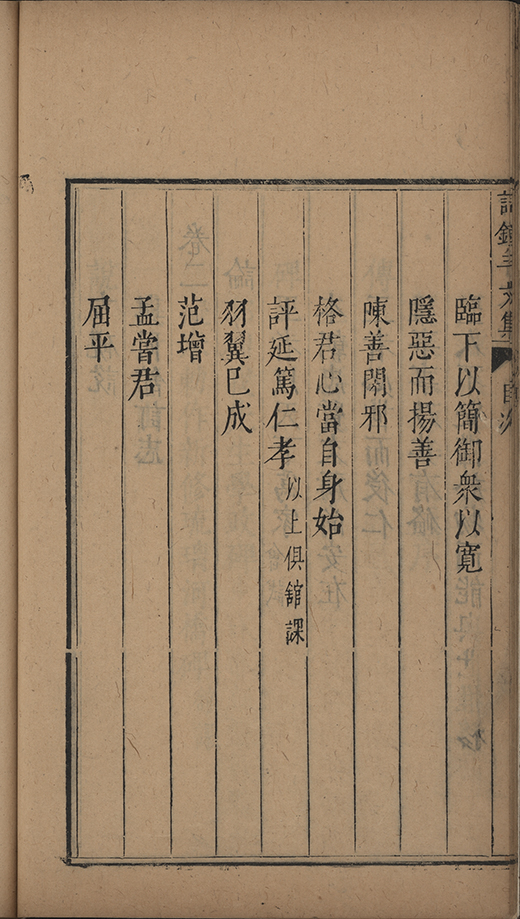 臨下以簡御衆以寬
隱惡而揚善
陳善閑邪
格君心當自身始
評延篤仁孝以上俱舘課
羽翼已成
范增
孟嘗君
屈平